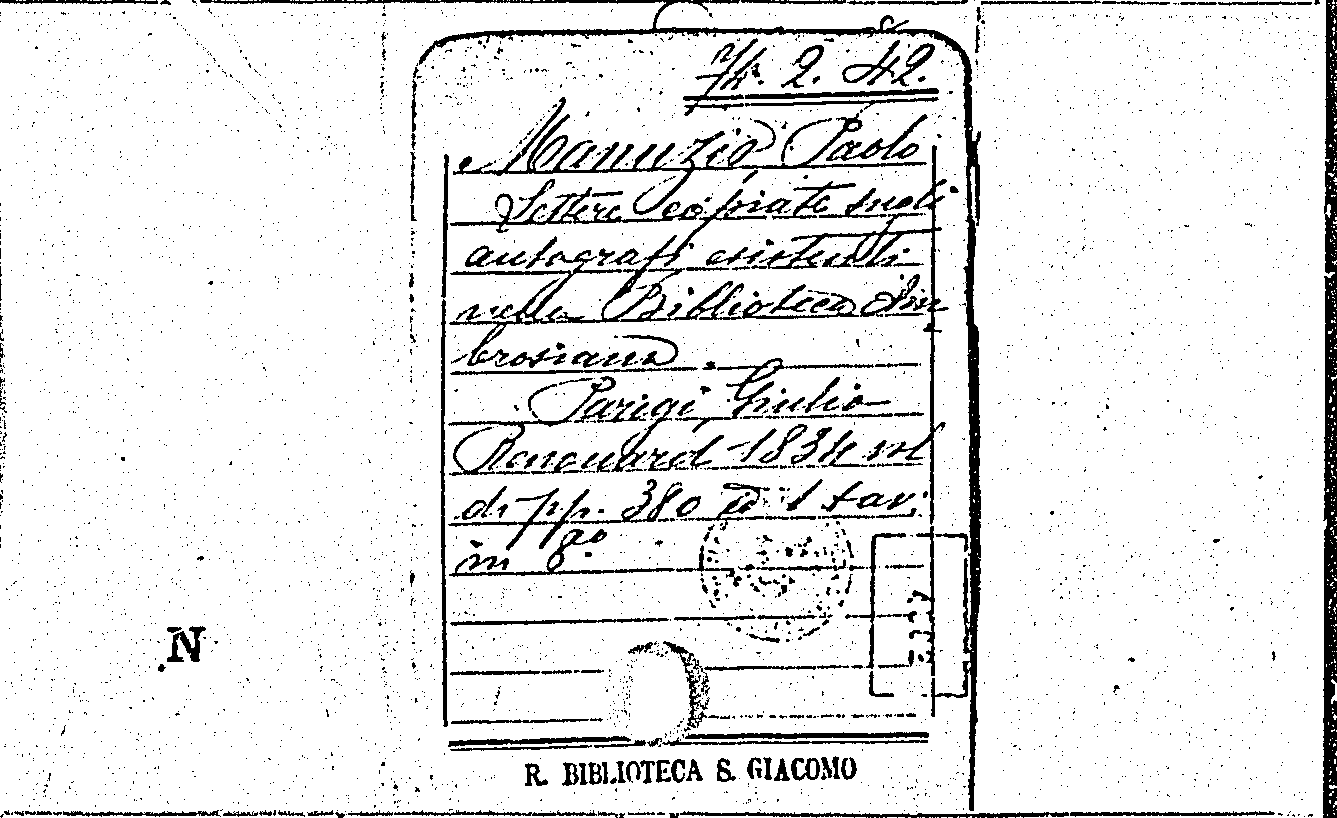 74. 2. 42.
Manuzio Paolo
Lettere copiate sugli
autografi esistenti
nella Biblioteca Am
brosiana.
Parigi, Giulio
Renouard 1834 vol
di pp. 380 e 1 tav.
in 8.º
N
R. BIBLIOTECA S. GIACOMO